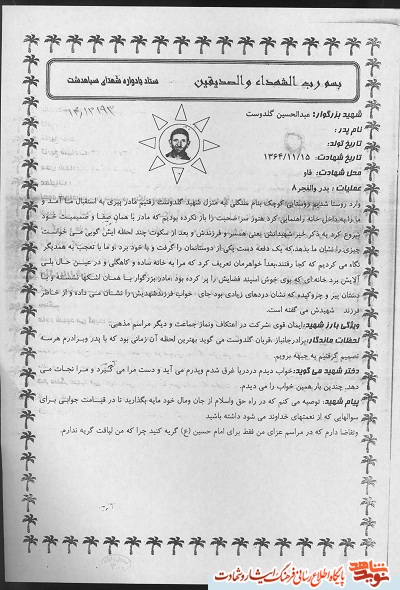 بسم رب الشهداء والصدیقین
ستاد یادواره شهدای سیاهدشت
شهید بزرگوار: عبدالحسین گلدوست
نام پدر:
تاریخ تولد:
تاریخ شهادت: ۱۳۶۴/۱۱/۱۵
محل شهادت: فاو
عملیات: بدر والفجر ۸
وارد روستا شدیم روستایی کوچک بنام ملکی به منزل شهید گلدوست رفتیم مادر پیری به استقبال ما آمد و
ما را به داخل خانه راهنمایی کرد هنوز سر صحبت را باز نکرده بودیم که مادر با همان صفا و صمیمیت خود
شروع کرد به ذکر خیر شهیدانش یعنی همسر و فرزندش و بعد از سکوت چند لحظه ایش گویی می خواست
چیزی را نشان ما بدهد که یک دفعه دست یکی از دوستانمان را گرفت و با خود برد و ما با تعجب به همدیگر
نگاه می کردیم که کجا رفتند، بعدا خواهرمان تعریف کرد که مرا به خانه ساده و کاهگلی و در عین حال بی
آلایش برد خانه ای که بوی خوش اسپند فضایش را پر کرده بود، مادر بزرگوار با همان اشکها نشسته و با
دستان پیر و چروکیده که نشان دردهای زیادی بود جای خواب فرزند شهیدش را نشان می داده و از خاطر
فرزند شهیدش می گفته است.
ویژگی بارز شهید: ایمان قوی شرکت در اعتکاف ونماز جماعت و دیگر مراسم مذهبی.
لحظات ماندگار: برادر جانباز، قربان گلدوست می گوید بهترین لحظه آن زمانی بود که با پدر وبرادرم هرسه
تصمیم گرفتیم به جبهه برویم.
دختر شهید می گوید: خواب دیدم دردریا غرق شدم وپدرم می آید و دست مرا می گیرد و مرا نجات می
دهد. چندین بار همین خواب را می دیدم.
پیام شهید: توصیه می کنم که در راه حق واسلام از جان ومال خود مایه بگذارید تا در قیامت جوابی برای
سوالهایی که از نعمتهای خداوند می شود داشته باشید
وتقاضا دارم که در مراسم عزای من فقط برای امام حسین (ع) گریه کنید چرا که من لیاقت گریه ندارم.
نوید شاهد
پایگاه اطلاع رسانی فرهنگ ایثار و شهادت